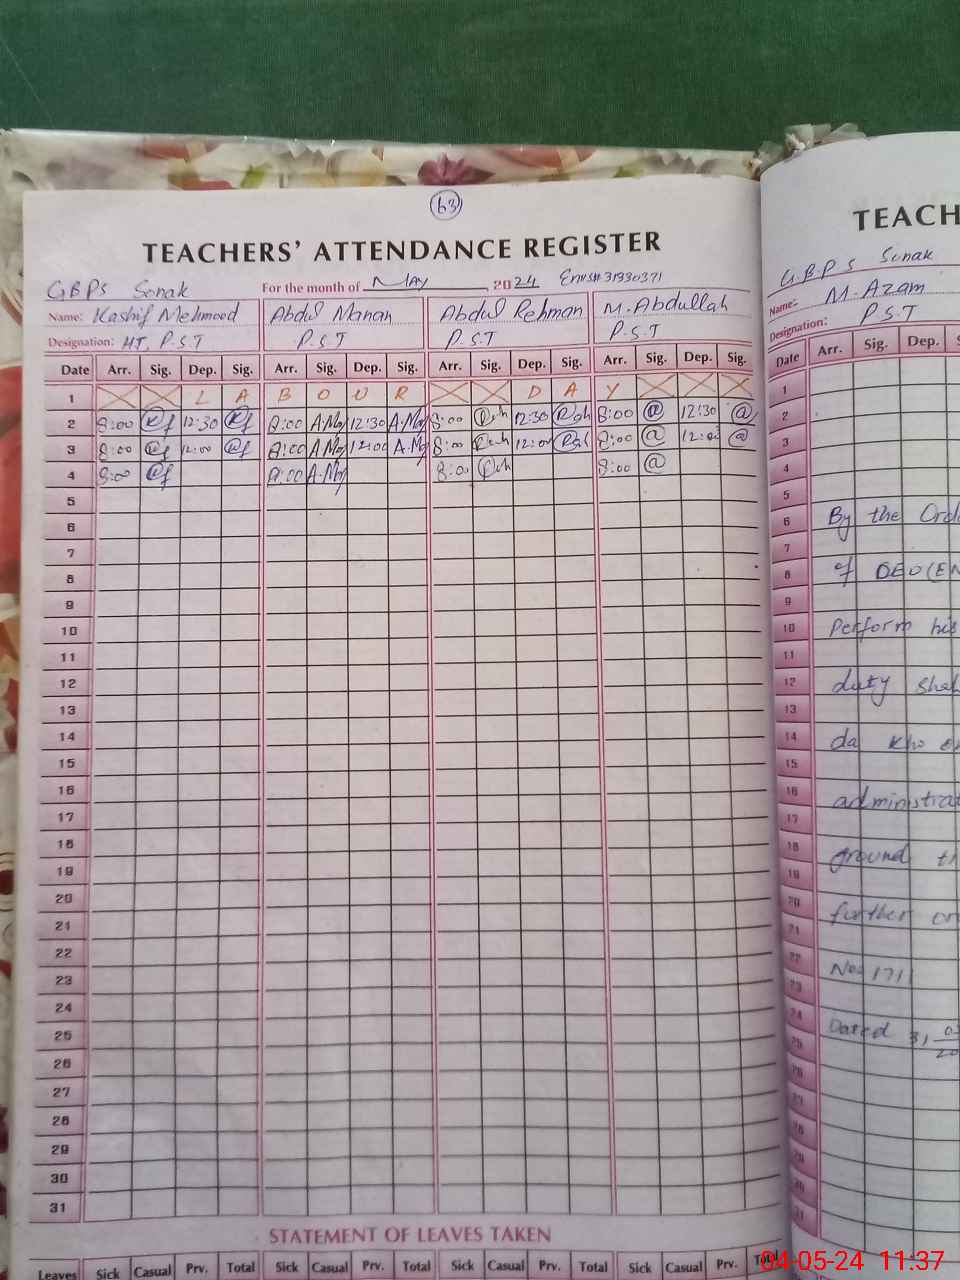 63
TEACHERS' ATTENDANCE REGISTER
GBPS Sonak For the month of May, 2024 EMIS# 31330371
Name: Kashif Mehmood Abdul Manan Abdul Rehman M. Abdullah
Designation: HT, P.S.T P.S.T P.S.T P.S.T
Date Arr. Sig. Dep. Sig. Arr. Sig. Dep. Sig. Arr. Sig. Dep. Sig. Arr. Sig. Dep. Sig.
1 L A B O U R D A Y
2 8:00 12:30 8:00 12:30 8:00 12:30 8:00 12:30
3 8:00 12:00 8:00 12:00 8:00 12:00 8:00 12:00
4 8:00 8:00 8:00 8:00
5
6
7
8
9
10
11
12
13
14
15
16
17
18
19
20
21
22
23
24
25
26
27
28
29
30
31
STATEMENT OF LEAVES TAKEN
Leaves Sick Casual Prv. Total Sick Casual Prv. Total Sick Casual Prv. Total Sick Casual Prv. Total
TEACH
G.B.P.S Sonak
Name: M. Azam
Designation: P.S.T
Date Arr. Sig. Dep. S
1
2
3
4
5
6 By the Orde
7
8 of DEO(EM
9
10 Perform his
11
12 duty
13
14 da
15
16 administrat
17
18 ground th
19
20 further or
21
22 No: 1711
23
24 Dated 31
25
26
27
28
29
30
31
04-05-24 11:37